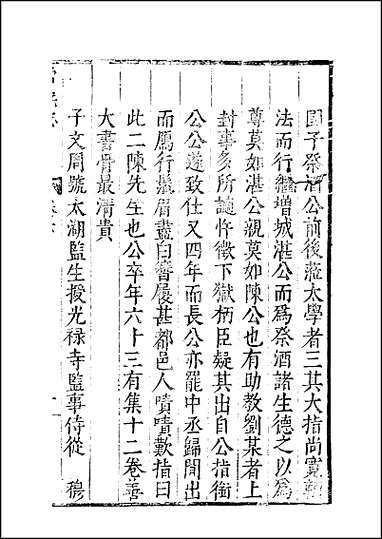 國子祭酒公前後蒞太學者三其大指尚寬敦
法而行繼增城湛公而為祭酒諸生德之以為
尊莫如湛公親莫如陳公也有助教劉某者上
封事多所譴忤徵下獄柄臣疑其出自公指銜
公公遂致仕又四年而長公亦罷中丞歸閒出
而鴈行鬚眉盡白簪屨甚都邑人嘖嘖歎指曰
此二陳先生也公卒年六十三有集十二卷善
大書骨最清貴
子文周號太湖監生授光祿寺監事侍從 穆